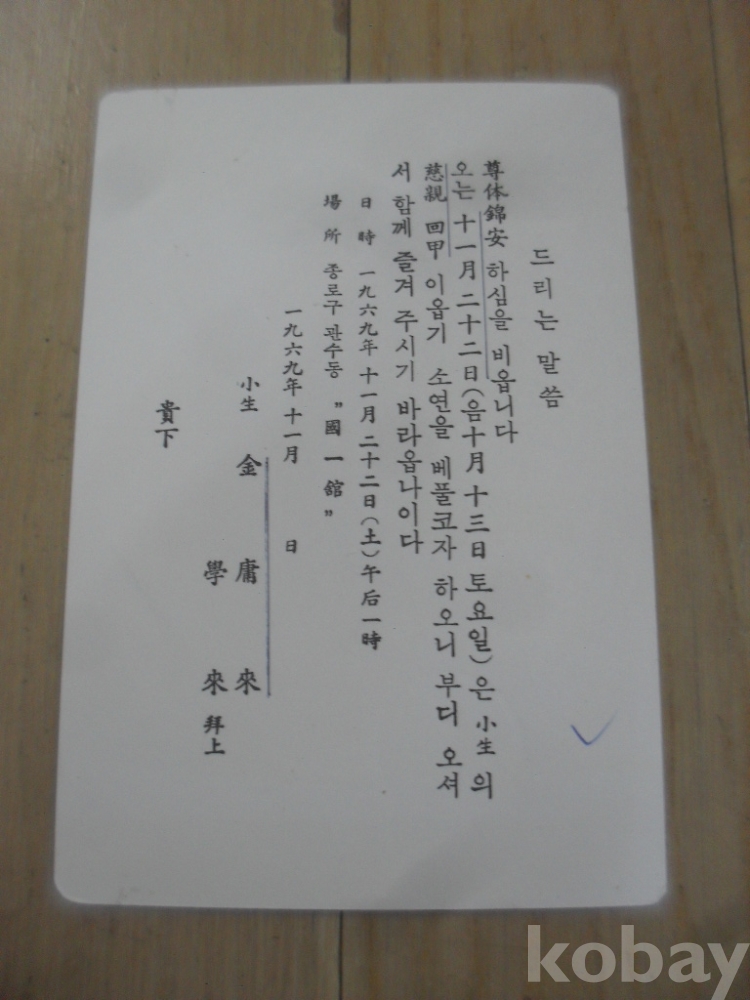 드리는 말씀
尊体錦安 하심을 비옵니다
오는 十一月 二十二日(음十月 十三日 토요일)은 小生의
慈親 回甲 이옵기 소연을 베풀코자 하오니 부디 오셔
서 함께 즐겨 주시기 바라옵나이다
日時 一九六九年 十一月 二十二日(土)午后一時
場所 종로구 관수동 "國一舘"
一九六九年 十一月 日
小生 金庸來
學來 拜上
貴下
kobay